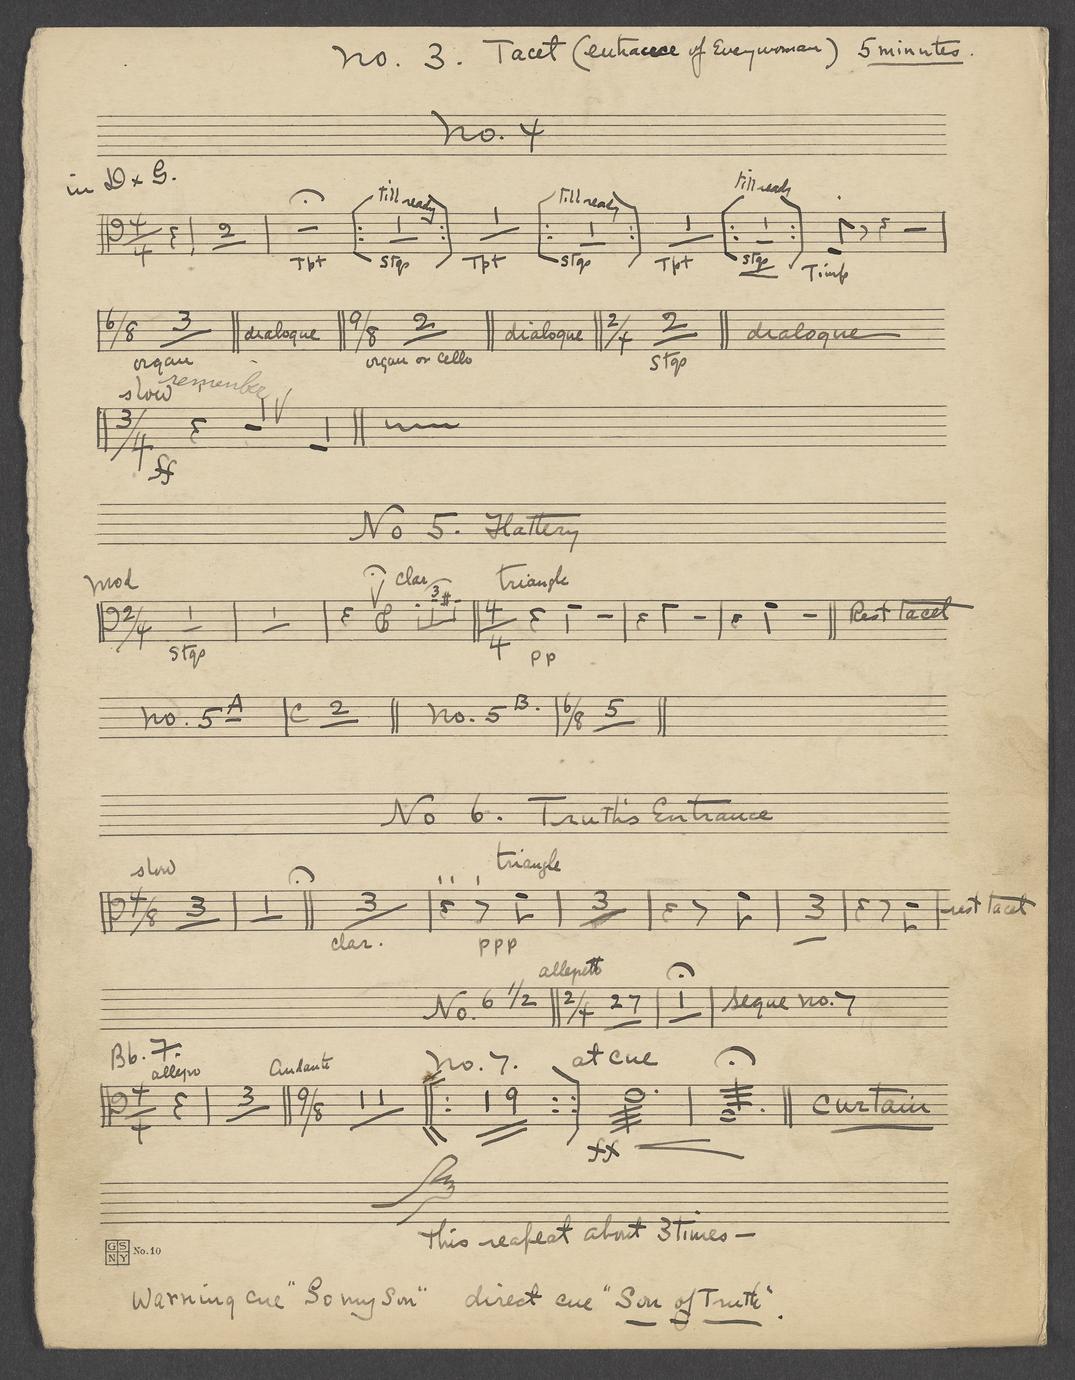 No. 3. Tacet (entrance of Everywoman) 5 minutes.
No. 4
in D & G.
till ready till ready till ready
4/4 2 1 1 1 1 1
Tpt Stgs Tpt Stgs Tpt Stgs Timp
6/8 3 dialogue 9/8 2 dialogue 2/4 2 dialogue
organ organ or cello Stgs
slow remember
3/4
ff
No 5. Flattery
mod clar triangle
3
2/4 1 1 4/4 Rest tacet
Stgs pp
No. 5 A C 2 No. 5 B. 6/8 5
No 6. Truth's Entrance
slow triangle
4/8 3 1 3 3 3 rest tacet
clar. ppp
allegretto
No. 6 1/2 2/4 27 1 Segue No. 7
Bb. F. No. 7. at cue
allegro Andante
4/4 3 9/8 11 19 curtain
ff
This repeat about 3 times —
GSNY No. 10
Warning cue "So my Son" direct cue "Son of Truth".